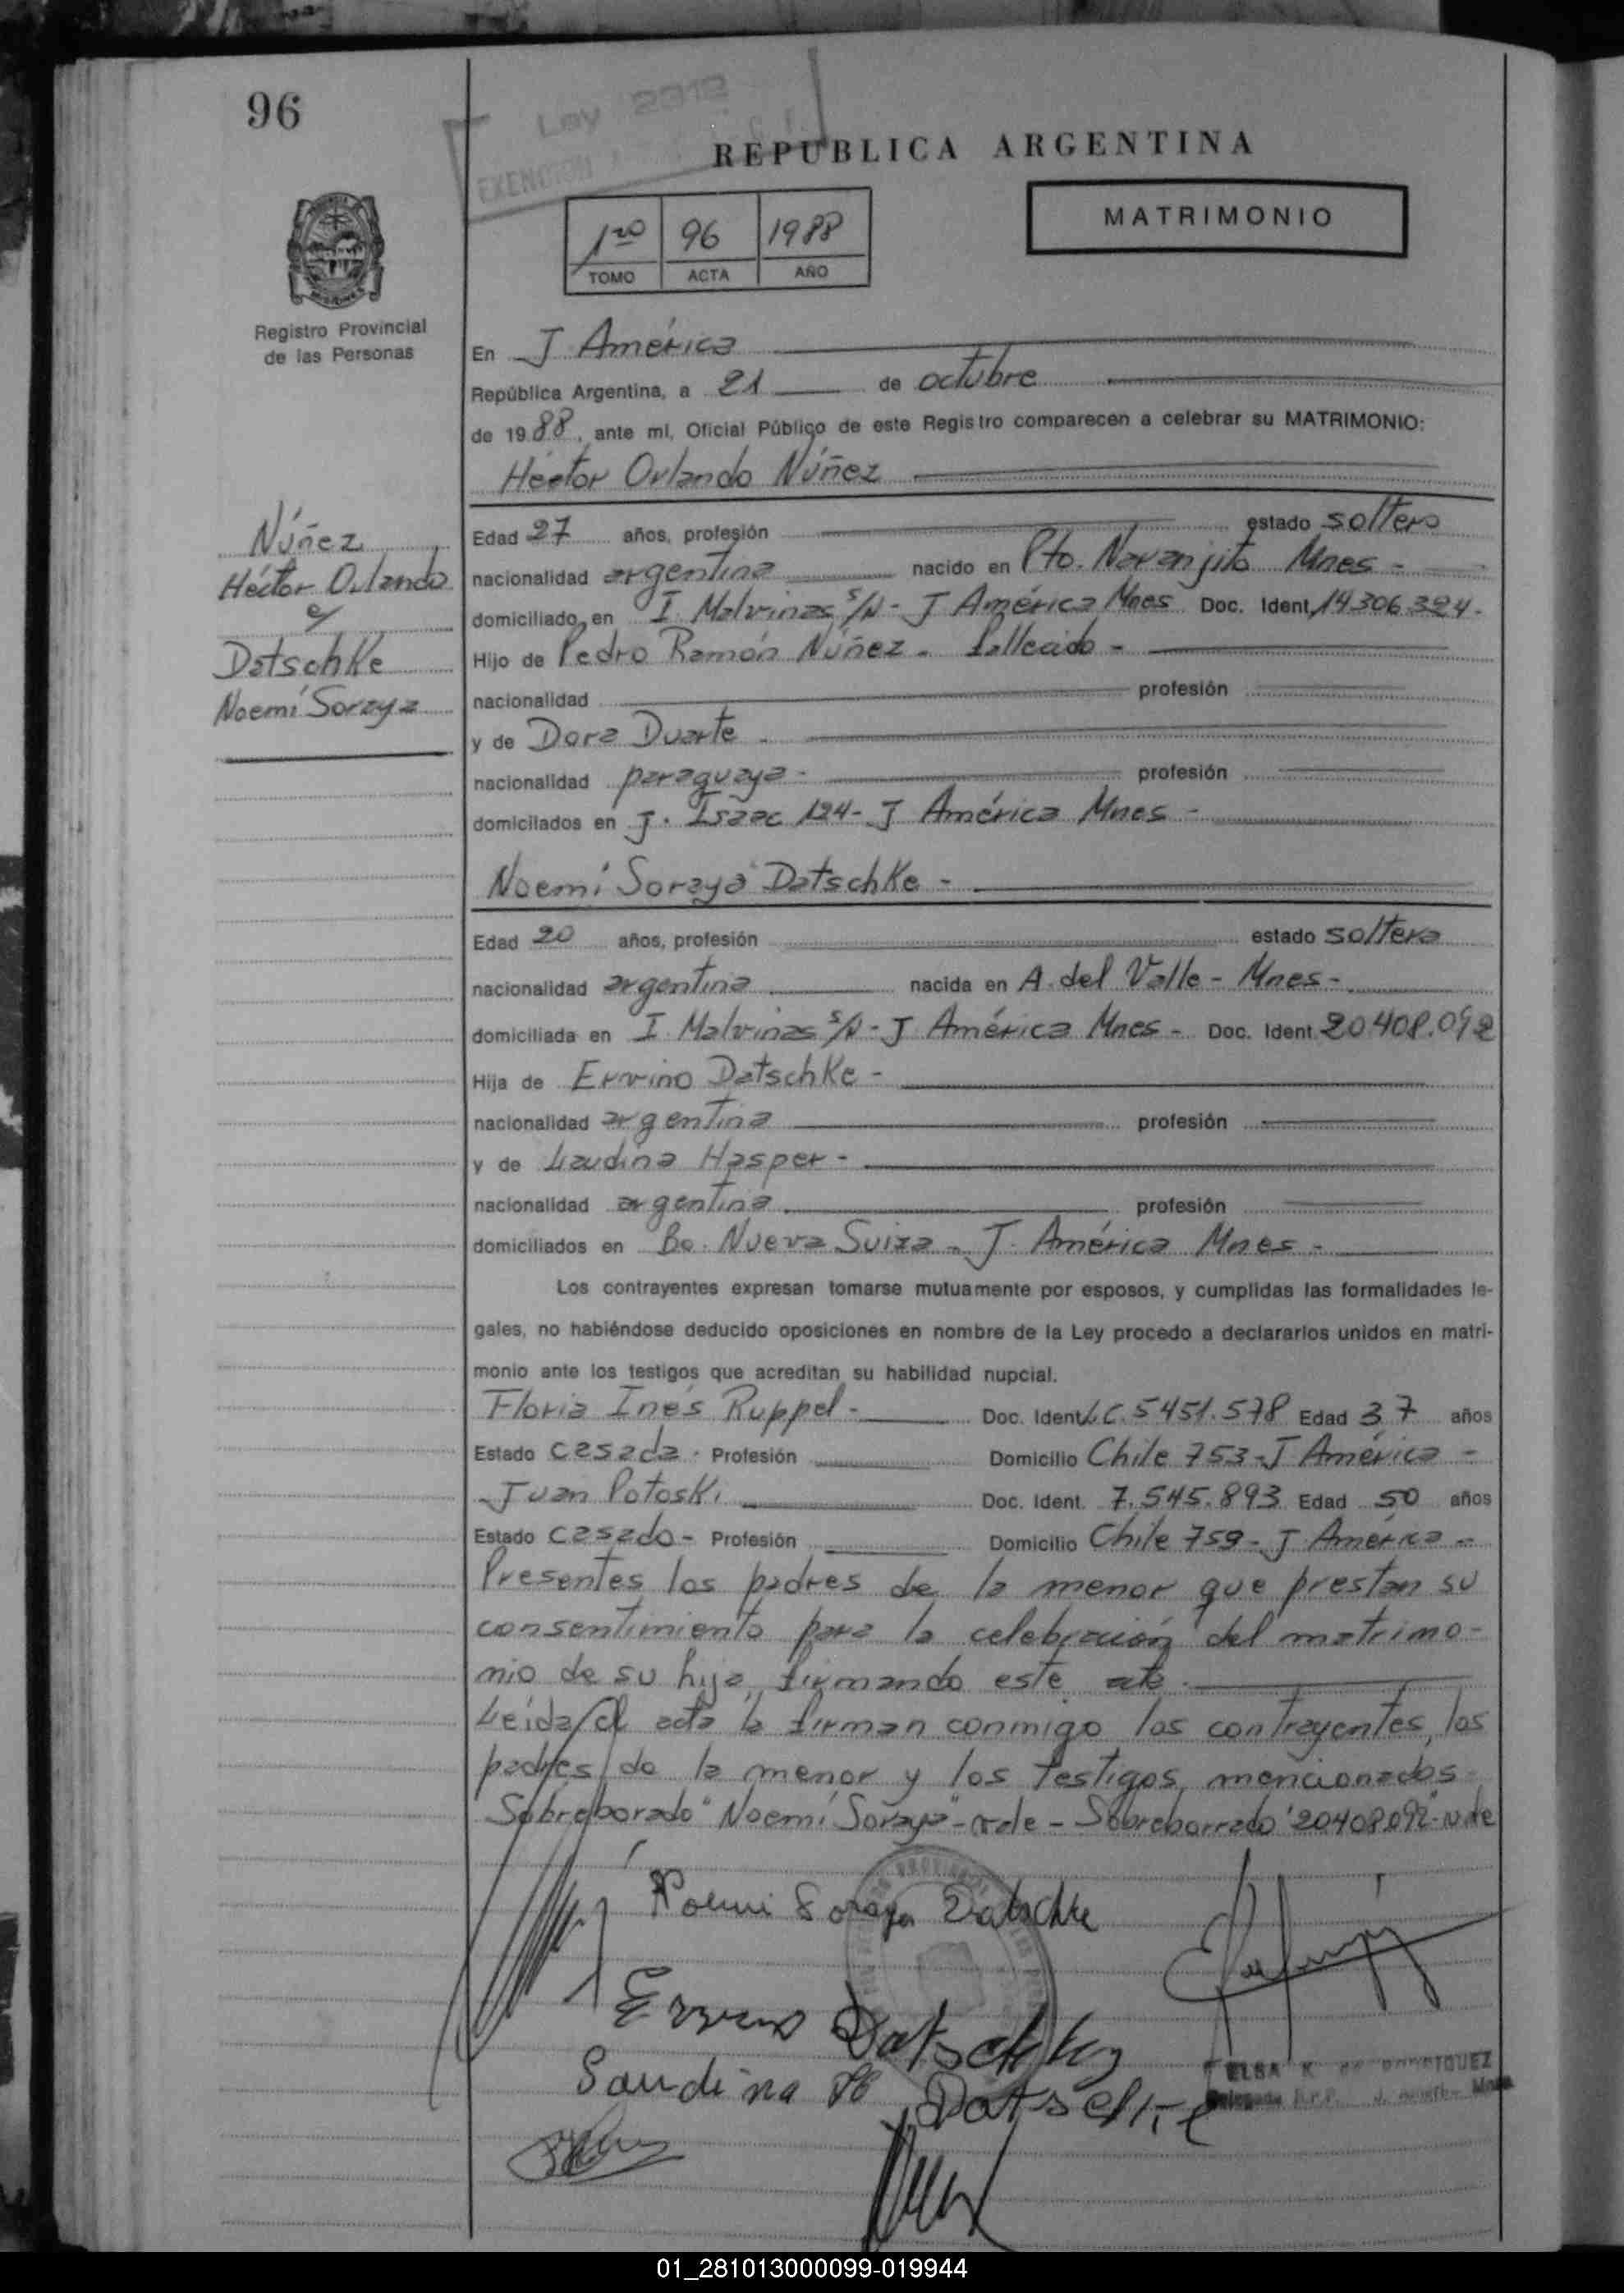 96
Ley 2312
EXENCION
REPUBLICA ARGENTINA
MATRIMONIO
1ro 96 1988
TOMO ACTA AÑO
Registro Provincial
de las Personas
En J América
República Argentina, a 21 de octubre
de 1988, ante mí, Oficial Público de este Registro comparecen a celebrar su MATRIMONIO:
Héctor Orlando Núñez
Núñez
Héctor Orlando
y
Datschke
Noemí Soraya
Edad 27 años, profesión estado soltero
nacionalidad argentina nacido en Pto. Naranjito Mnes -
domiciliado en I. Malvinas s/N - J América Mnes Doc. Ident. 14.306.324-
Hijo de Pedro Ramón Núñez - fallecido -
nacionalidad profesión
y de Dora Duarte -
nacionalidad paraguaya - profesión
domiciliados en J. Isaac 124 - J América Mnes -
Noemí Soraya Datschke -
Edad 20 años, profesión estado soltera
nacionalidad argentina nacida en A. del Valle - Mnes -
domiciliada en I. Malvinas s/N - J América Mnes - Doc. Ident. 20.408.092
Hija de Ervino Datschke -
nacionalidad argentina profesión
y de Laudina Hasper -
nacionalidad argentina profesión
domiciliados en Bo. Nueva Suiza - J. América Mnes -
Los contrayentes expresan tomarse mutuamente por esposos, y cumplidas las formalidades le-
gales, no habiéndose deducido oposiciones en nombre de la Ley procedo a declararlos unidos en matri-
monio ante los testigos que acreditan su habilidad nupcial.
Floria Inés Ruppel - Doc. Ident. L.C. 5451.578 Edad 37 años
Estado casada - Profesión Domicilio Chile 753 - J América -
Juan Potoski Doc. Ident. 7.545.893 Edad 50 años
Estado casado - Profesión Domicilio Chile 759 - J América -
Presentes los padres de la menor que prestan su
consentimiento para la celebración del matrimo-
nio de su hija, firmando este acto.
Leída el acta la firman conmigo los contrayentes, los
padres de la menor y los testigos mencionados
Sobreborrado "Noemí Soraya" - vale - Sobreborrado "20408092" - vale
Noemi Soraya Datschke
Ervino Datschke
Laudina H Datschke
ELSA K de RODRIGUEZ
Delegada R.P.P. J. América Mnes
01_281013000099-019944